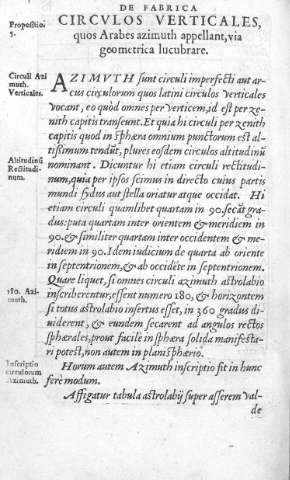 DE FABRICA
Propositio 5.
CIRCVLOS VERTICALES,
quos Arabes azimuth appellant, via
geometrica lucubrare.
Circuli Azi
muth.
Verticales.
AZIMVTH sunt circuli imperfecti aut ar-
cus circulorum quos latini circulos verticales
vocant, eo quòd omnes per verticem, id est per ze-
nith capitis transeunt. Et quia hi circuli per zenith
capitis quod in sphæra omnium punctorum est al-
tissimum tendūt, plures eosdem circulos altitudinū
Altitudinū
Rectitudi-
num.
nominant. Dicuntur hi etiam circuli rectitudi-
num, quia per ipsos scimus in directo cuius partis
mundi sydus aut stella oriatur atque occidat. Hi
etiam circuli quamlibet quartam in 90. secāt gra-
dus: puta quartam inter orientem & meridiem in
90. & similiter quartam inter occidentem & me-
ridiem in 90. Idem iudicium de quarta ab oriente
in septentrionem, & ab occidēte in septentrionem.
Quare liquet, si omnes circuli azimuth astrolabio
180. Azi-
muth.
inscriberentur, essent numero 180, & horizontem
si totus astrolabio insertus esset, in 360 gradus di-
uiderent, & eundem secarent ad angulos rectos
sphærales, prout facilè in sphæra solida manifesta-
ri potest, non autem in planisphærio.
Inscriptio
circulorum
Azimuth.
Horum autem Azimuth inscriptio fit in hunc
ferè modum.
Affigatur tabula astrolabij super asserem val-
de